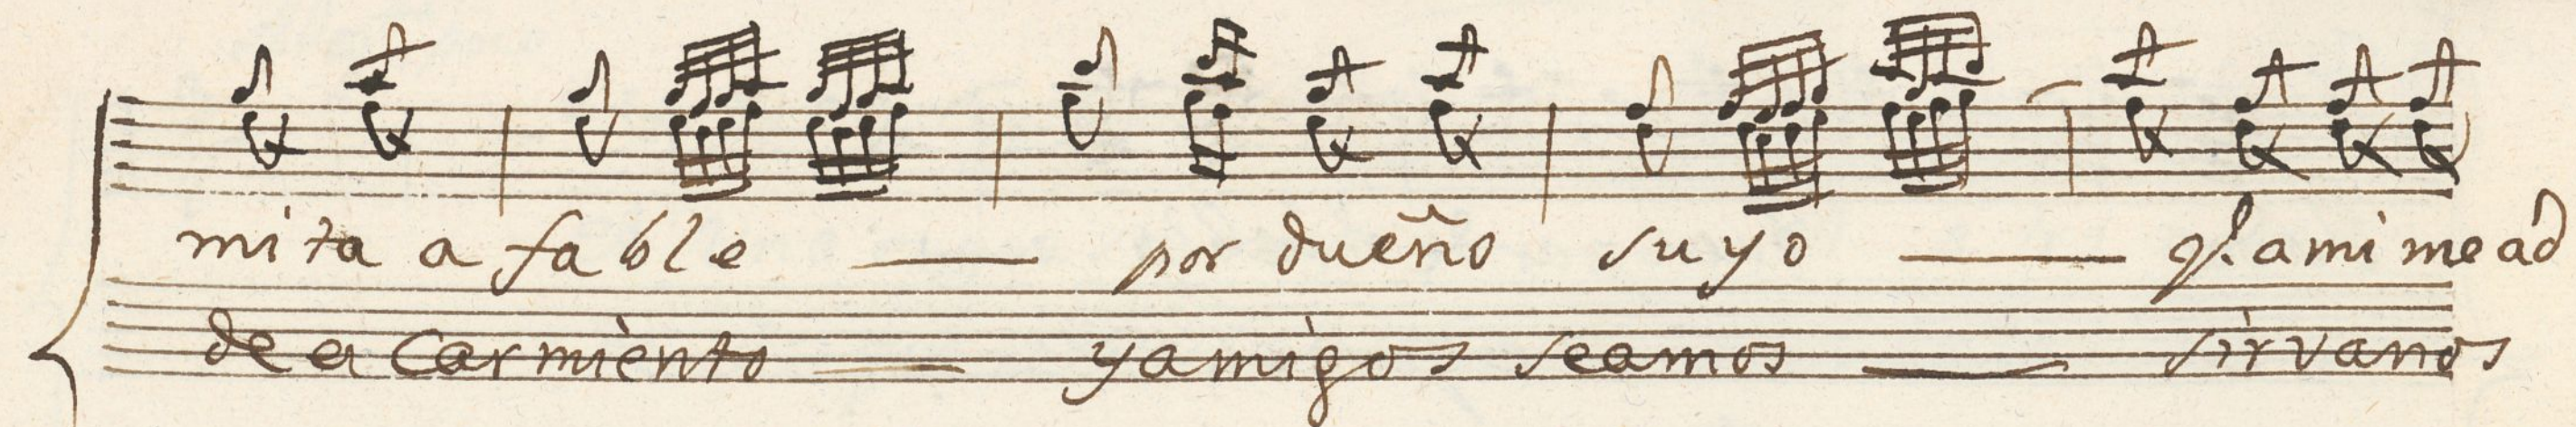 mi ta a fa ble — por dueño suyo — q.e a mi me ad
de es carmiento — y amigos seamos — sirvanos